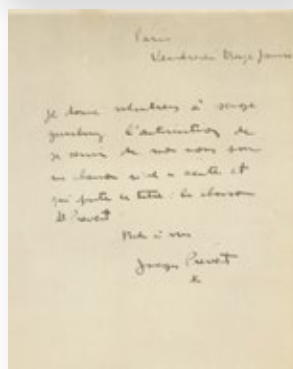 Paris
Vendredi douze Janvier
Je donne volontiers à serge
gainsbourg l'autorisation de
se servir de mon nom pour
sa chanson qu'il a écrite et
qui porte ce titre : la chanson
de Prévert
Jacques Prévert